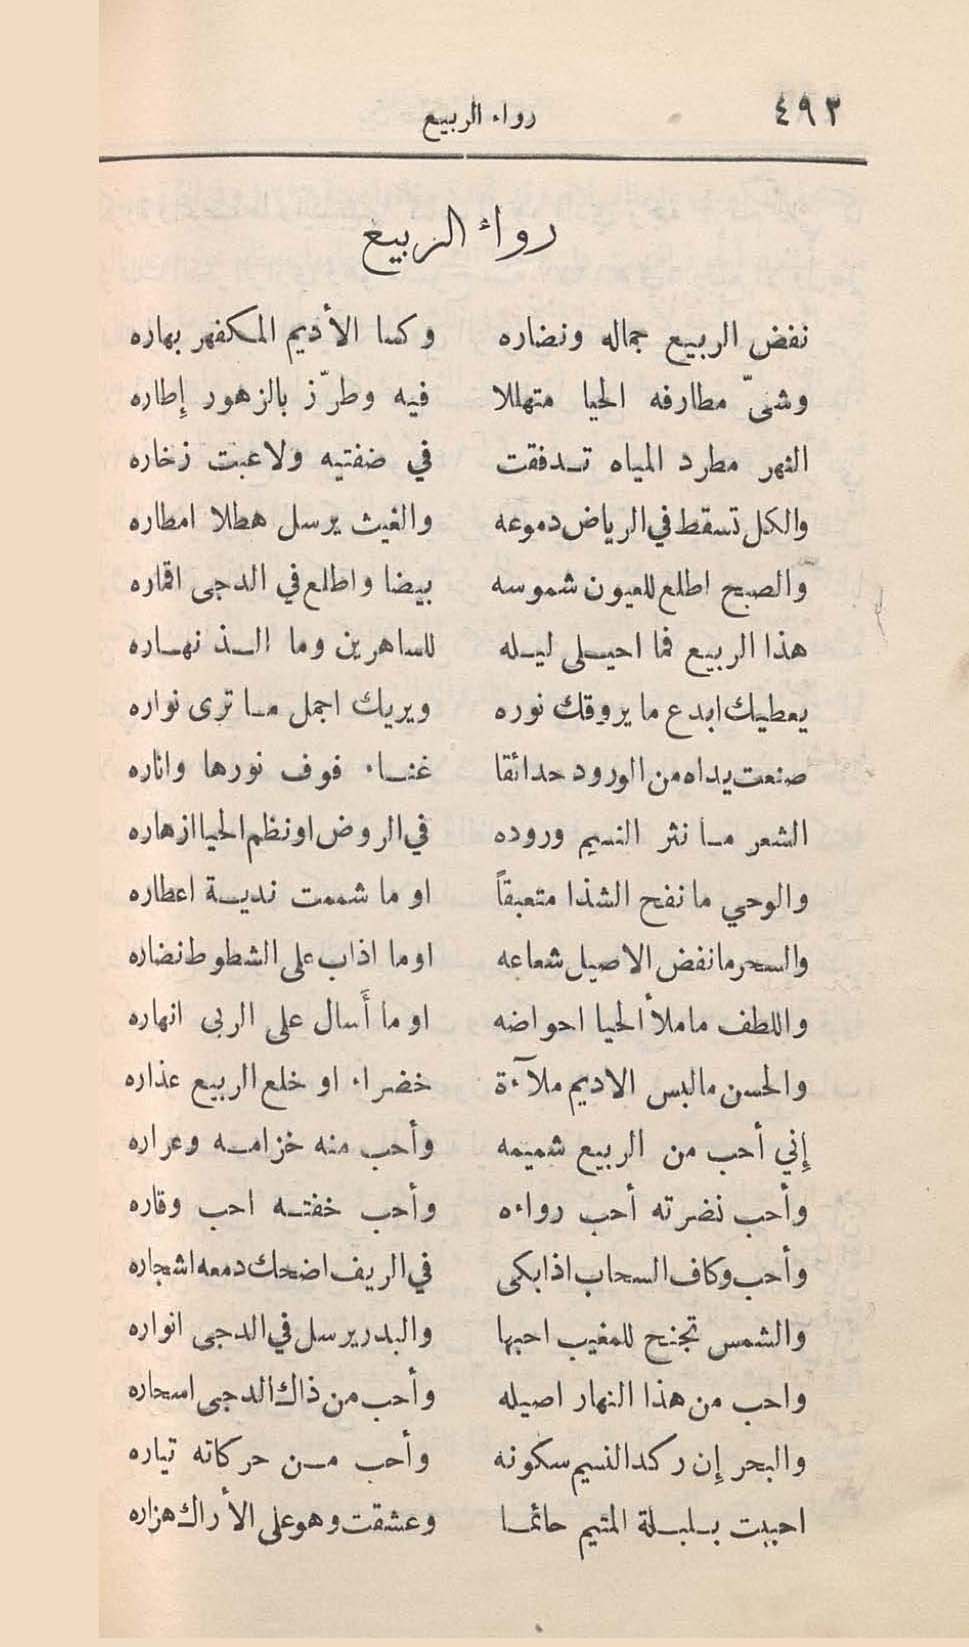 ٤٩٢ رواء الربيع
رواء الربيع
نفض الربيع جماله ونضاره وكسا الأديم المكفهر بهاره
وشىّ مطارفه الحيا متهللا فيه وطرّز بالزهور إطاره
النهر مطرد المياه تدفقت في ضفتيه ولاعبت زخاره
والكل تسقط في الرياض دموعه والغيث يرسل هطلا امطاره
والصبح اطلع للعيون شموسه بيضا واطلع في الدجى اقماره
هذا الربيع فما احيلى ليله للساهرين وما الذ نهاره
يعطيك ابدع ما يروقك نوره ويريك اجمل ما ترى نواره
صنعت يداه من الورود حدائقا غناء فوف نورها واناره
الشعر ما نثر النسيم وروده في الروض او نظم الحيا ازهاره
والوحي ما نفح الشذا متعبقاً او ما شممت ندية اعطاره
والسحر ما نفض الاصيل شعاعه او ما اذاب على الشطوط نضاره
واللطف ما ملأ الحيا احواضه او ما أسال على الربى انهاره
والحسن ما لبس الاديم ملآءة خضراء او خلع الربيع عذاره
إني أحب من الربيع شميمه وأحب منه خزامه وعراره
وأحب نضرته أحب رواءه وأحب خفته احب وقاره
وأحب وكاف السحاب اذا بكى في الريف اضحك دمعه اشجاره
والشمس تجنح للمغيب احبها والبدر يرسل في الدجى انواره
واحب من هذا النهار اصيله وأحب من ذاك الدجى اسحاره
والبحر إن ركد النسيم سكونه وأحب من حركاته تياره
احببت بلبلة المتيم حائما وعشقت وهو على الأراك هزاره